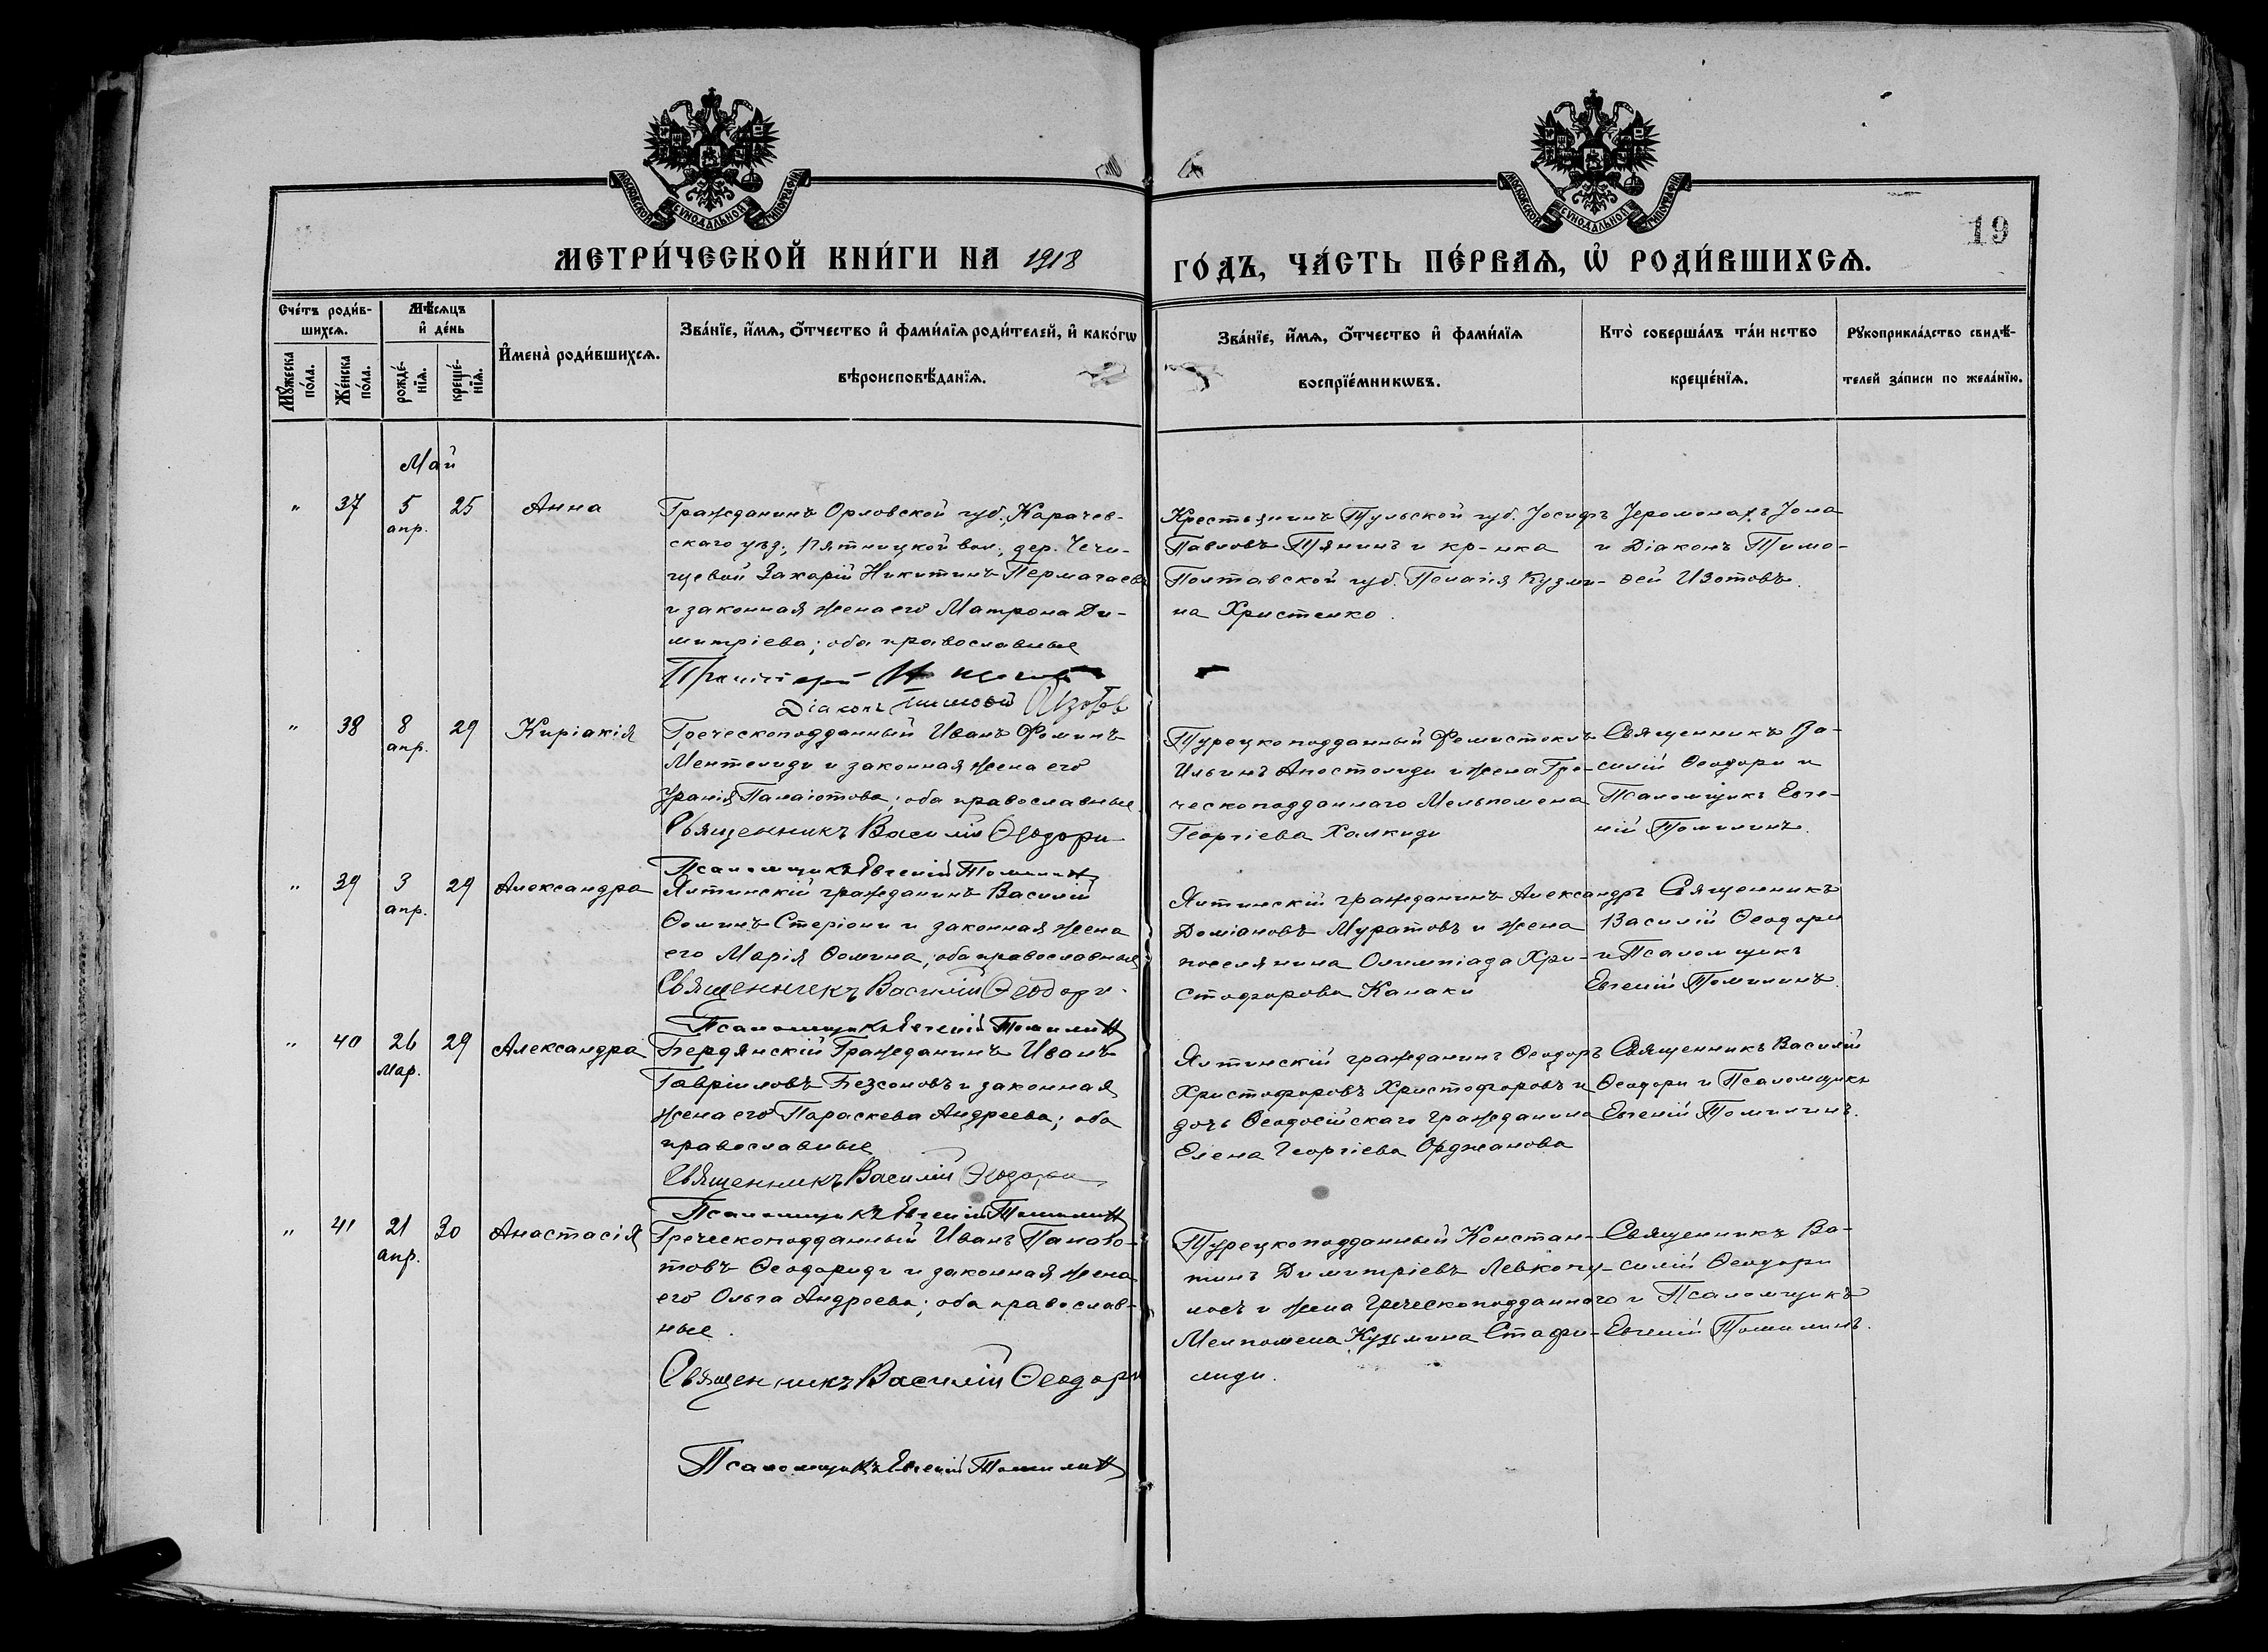 МОСКОВСКОЙ СУНОДАЛЬНОЙ ТИПОГРАФІИ
МОСКОВСКОЙ СУНОДАЛЬНОЙ ТИПОГРАФІИ
19
МЕТРИ́ЧЕСКОЙ КНИ́ГИ НА 1918
ГО́ДЪ, ЧА́СТЬ ПЕ́РВАѦ, Ѡ҆ РОДИ́ВШИХСѦ.
Сче́тъ роди́в-
шихсѧ.
Мꙋ́жеска
по́ла.
Же́нска
по́ла.
Мѣ́сѧцъ
и҆ де́нь
рожде́-
нїѧ.
креще́-
нїѧ.
И҆мена̀ роди́вшихсѧ.
Зва́нїе, и҆́мѧ, ѻ҆́тчество и҆ фами́лїѧ роди́телей, и҆ како́гѡ
вѣроисповѣ́данїѧ.
Зва́нїе, и҆́мѧ, ѻ҆́тчество и҆ фами́лїѧ
воспрїе́мникѡвъ.
Кто̀ соверша́лъ та́инство
креще́нїѧ.
Рꙋкоприкла́дство свидѣ́-
телей за́писи по жела́нїю.
Май
" 37 5 апр. 25 Анна
Гражданинъ Орловской губ. Карачев-
скаго уѣзд., Пятницкой вол., дер.
Захарій Никитинъ
и законная жена его Матрона Ди-
митріева; оба православные
Діаконъ Тимоѳей Изотовъ
Крестьянинъ Тульской губ. Іосифъ
Павловъ Тянинъ и кр-нка
Полтавской губ. Пелагія Кузми-
на Христенко.
Іеромонахъ Іона
и Діаконъ Тимо-
ѳей Изотовъ.
" 38 8 апр. 29 Киріакія
Греческоподданный Иванъ Ѳоминъ
Ментелиди и законная жена его
Уранія Панаіотова; оба православные.
Священникъ Василій Ѳеодори
Псаломщикъ Евгеній Томилин
Турецкоподданный Ѳемистоклъ
Ильинъ Апостолиди и жена Гре-
ческоподданнаго Мельпомена
Георгіева Халкиди
Священникъ Ва-
силій Ѳеодори и
Псаломщикъ Евге-
ній Томилинъ.
" 39 3 апр. 29 Александра
Ялтинскій гражданинъ Василій
Ѳоминъ Стеріони и законная жена
его Марія Ѳомина; оба православные
Священникъ Василій Ѳеодори.
Псаломщикъ Евгеній Томилин
Ялтинскій гражданинъ Александръ
Доміановъ Муратовъ и жена
поселянина Олимпіада Хри-
стофорова Канаки
Священникъ
Василій Ѳеодори
и Псаломщикъ
Евгеній Томилинъ.
" 40 26 мар. 29 Александра
Бердянскій Гражданинъ Иванъ
Гавріиловъ Безсоновъ и законная
жена его Параскева Андреева; оба
православные
Священникъ Василій Ѳеодори
Псаломщикъ Евгеній Томилин
Ялтинскій гражданинъ Ѳеодоръ
Христофоровъ Христофоровъ и
дочь Ѳеодосійскаго гражданина
Елена Георгіева Орджанова
Священникъ Василій
Ѳеодори и Псаломщикъ
Евгеній Томилинъ.
" 41 21 апр. 30 Анастасія
Греческоподданный Иванъ Панаіо-
товъ Ѳеодориди и законная жена
его Ольга Андреева; оба православ-
ные.
Священникъ Василій Ѳеодори
Псаломщикъ Евгеній Томилин
Турецкоподданный Констан-
тинъ Димитріевъ Левкопу-
лосъ и жена Греческоподданного
Мелпомена Кузьмина Стафи-
лиди.
Священникъ Ва-
силій Ѳеодори
и Псаломщикъ
Евгеній Томилинъ.